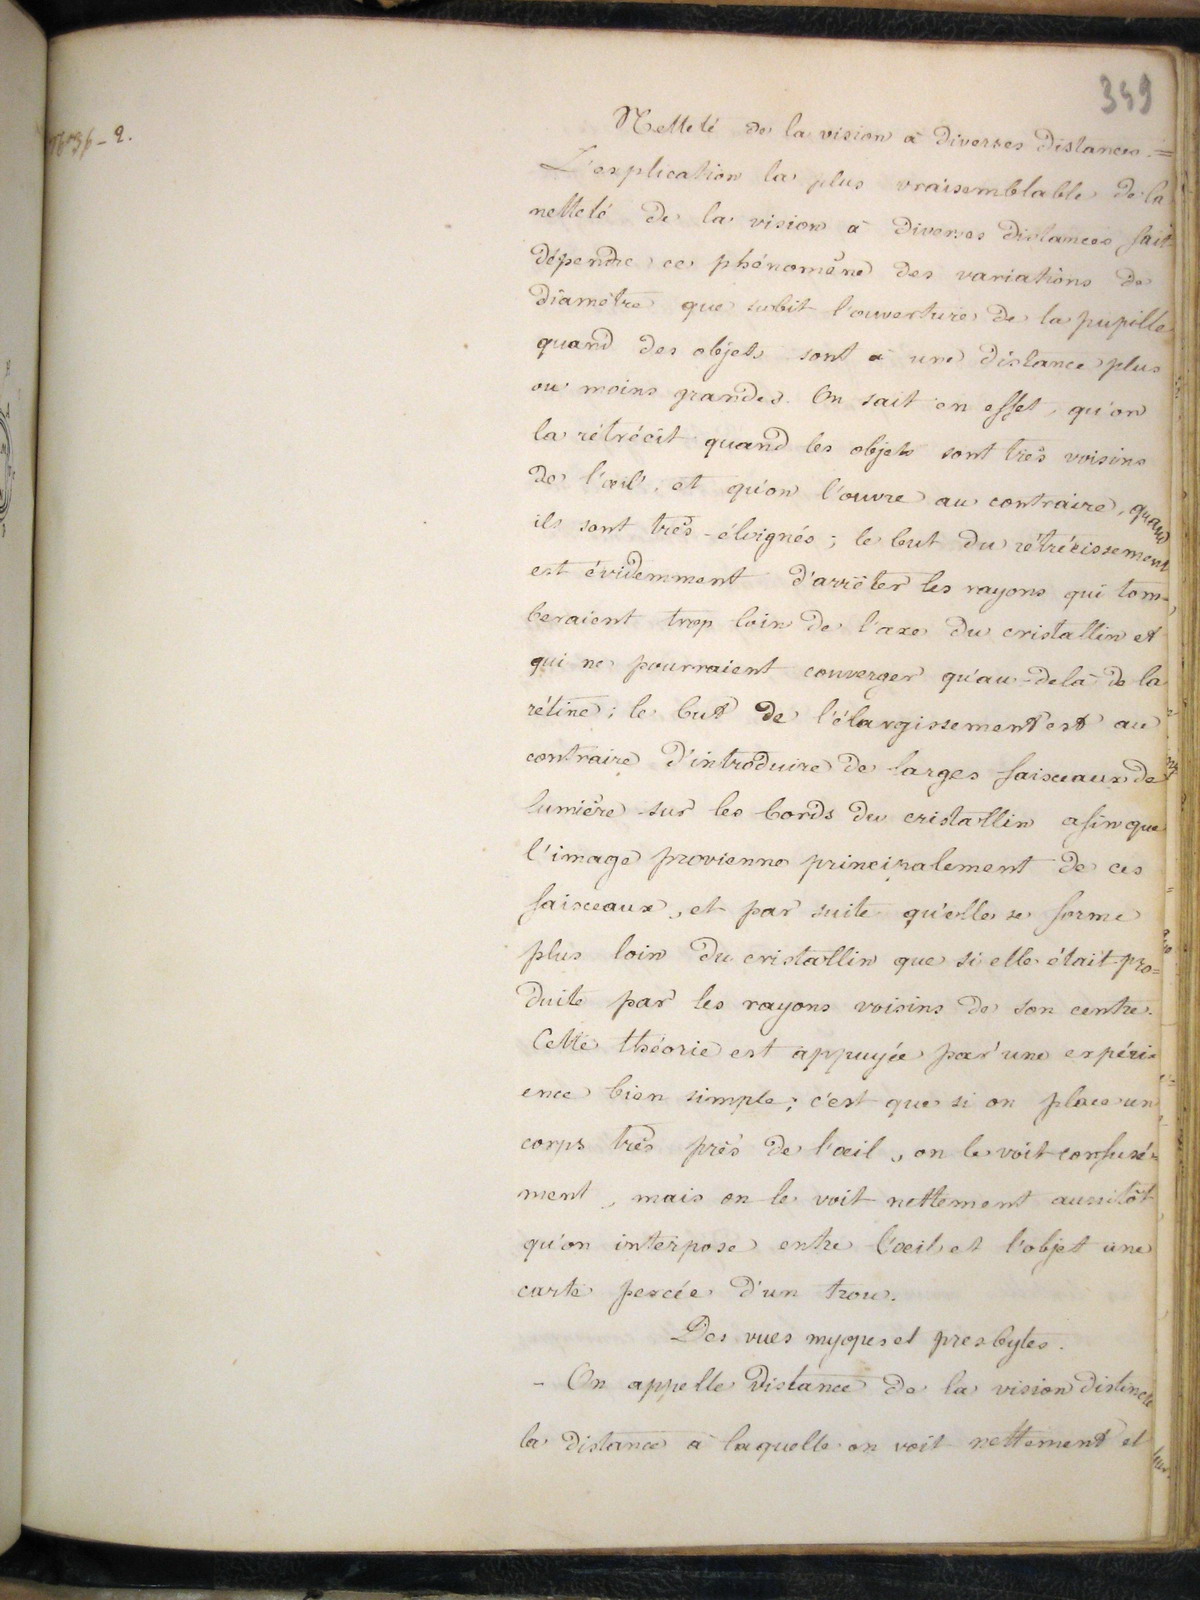 349
Netteté de la vision à diverses distances. =
L'explication la plus vraisemblable de la
netteté de la vision à diverses distances fait
dépendre ce phénomène des variations de
diamètre que subit l'ouverture de la pupille
quand des objets sont à une distance plus
ou moins grandes. On sait en effet, qu'on
la rétrécit quand les objets sont très voisins
de l'œil, et qu'on l'ouvre au contraire, quand
ils sont très-éloignés ; le but du rétrécissement
est évidemment d'arrêter les rayons qui tom-
beraient trop loin de l'axe du cristallin et
qui ne pourraient converger qu'au-delà de la
rétine ; le but de l'élargissement est au
contraire d'introduire de larges faisceaux de
lumière sur les bords du cristallin afin que
l'image provienne principalement de ces
faisceaux, et par suite qu'elle se forme
plus loin du cristallin que si elle était pro=
duite par les rayons voisins de son centre.
Cette théorie est appuyée par une expéri=
ence bien simple ; c'est que si on place un
corps très près de l'œil, on le voit confusé=
ment, mais on le voit nettement aussitôt
qu'on interpose entre l'œil et l'objet une
carte percée d'un trou.
Des vues myopes et presbytes.
- On appelle distance de la vision distincte
la distance à laquelle on voit nettement et